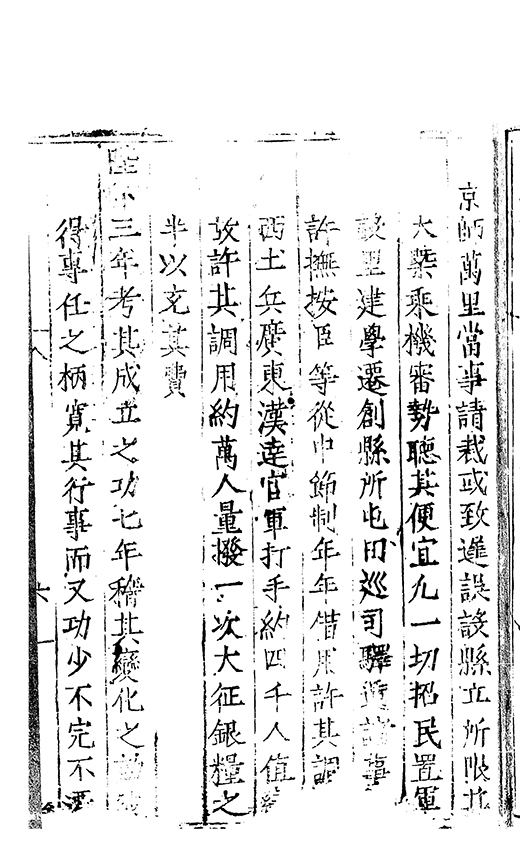 京師萬里當事請裁或致遲誤該縣立所
大槩乘機審勢聽其便宜凡一切招民置軍
設里建學遷創縣所屯田巡司驛遞諸事
許撫按臣等從中節制年年借用許其調
西土兵廣東漢達官軍打手約四千人值
故許其調用約萬人量撥一次大征銀糧之
半以充其費
三年考其成立之功七年稽其變化之
得專任之柄寬其行事而又功少不完不